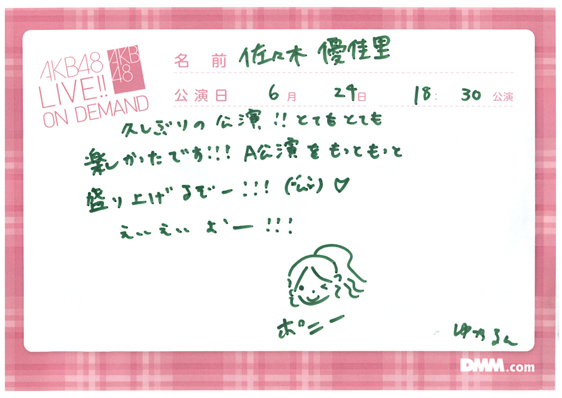 AKB48
LIVE!!
ON DEMAND
AKB
48
名前 佐々木 優佳里
公演日 6月 24日 18:30公演
久しぶりの公演!!とてもとても
楽しかったです!!! A公演をもっともっと
盛り上げるぞー!!! ♡
えいえいおー!!!
ポニー
ゆかるん
DMM.com